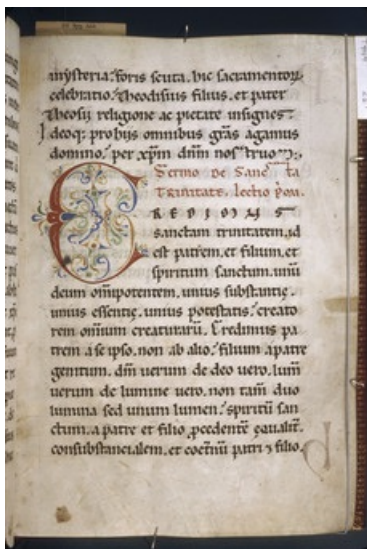 mysteria. foris scuta. hic sacramentoꝝ
celebratio. Theodisius filius. et pater
Theosii religione ac pietate insignes.
Ideoq; pro hiis omnibus gr̄as agamus
domino. per xp̄m dn̄m nostruom.
Sermo de Sancta
Trinitate. lectio p̄ma.
CREDIMUS
sanctam trinitatem. id
est patrem. et filium. et
spiritum sanctum. unū
deum om̄ipotentem. unius substantię.
unius essentię. unius potestatis. creato
rem omnium creaturarū. Credimus pa
trem a se ipso. non ab alio. filium a patre
genitum. dm̄ uerum de deo uero. lum̄
uerum de lumine uero. non tam̄ duo
lumina sed unum lumen. spiritū san
ctum. a patre et filio p̱cedentē equalē.
consubstancialem. et coet̄nū patri ⁊ filio.